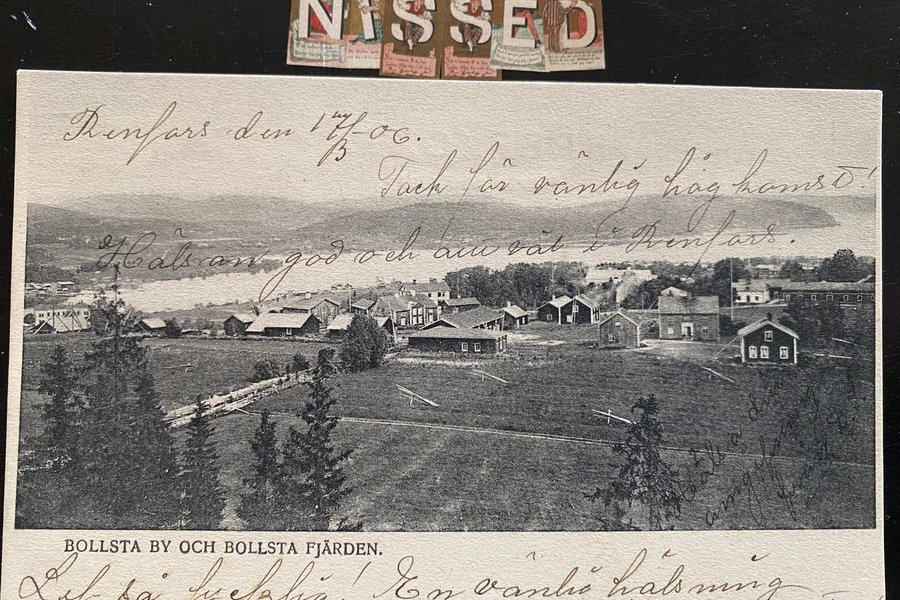 NISSED
Renfors den 17/3-06.
Tack för vänlig håg komst!
Hälsan god och allt väl i Renfors.
BOLLSTA BY OCH BOLLSTA FJÄRDEN.
Lef så lycklig! En vänlig hälsning